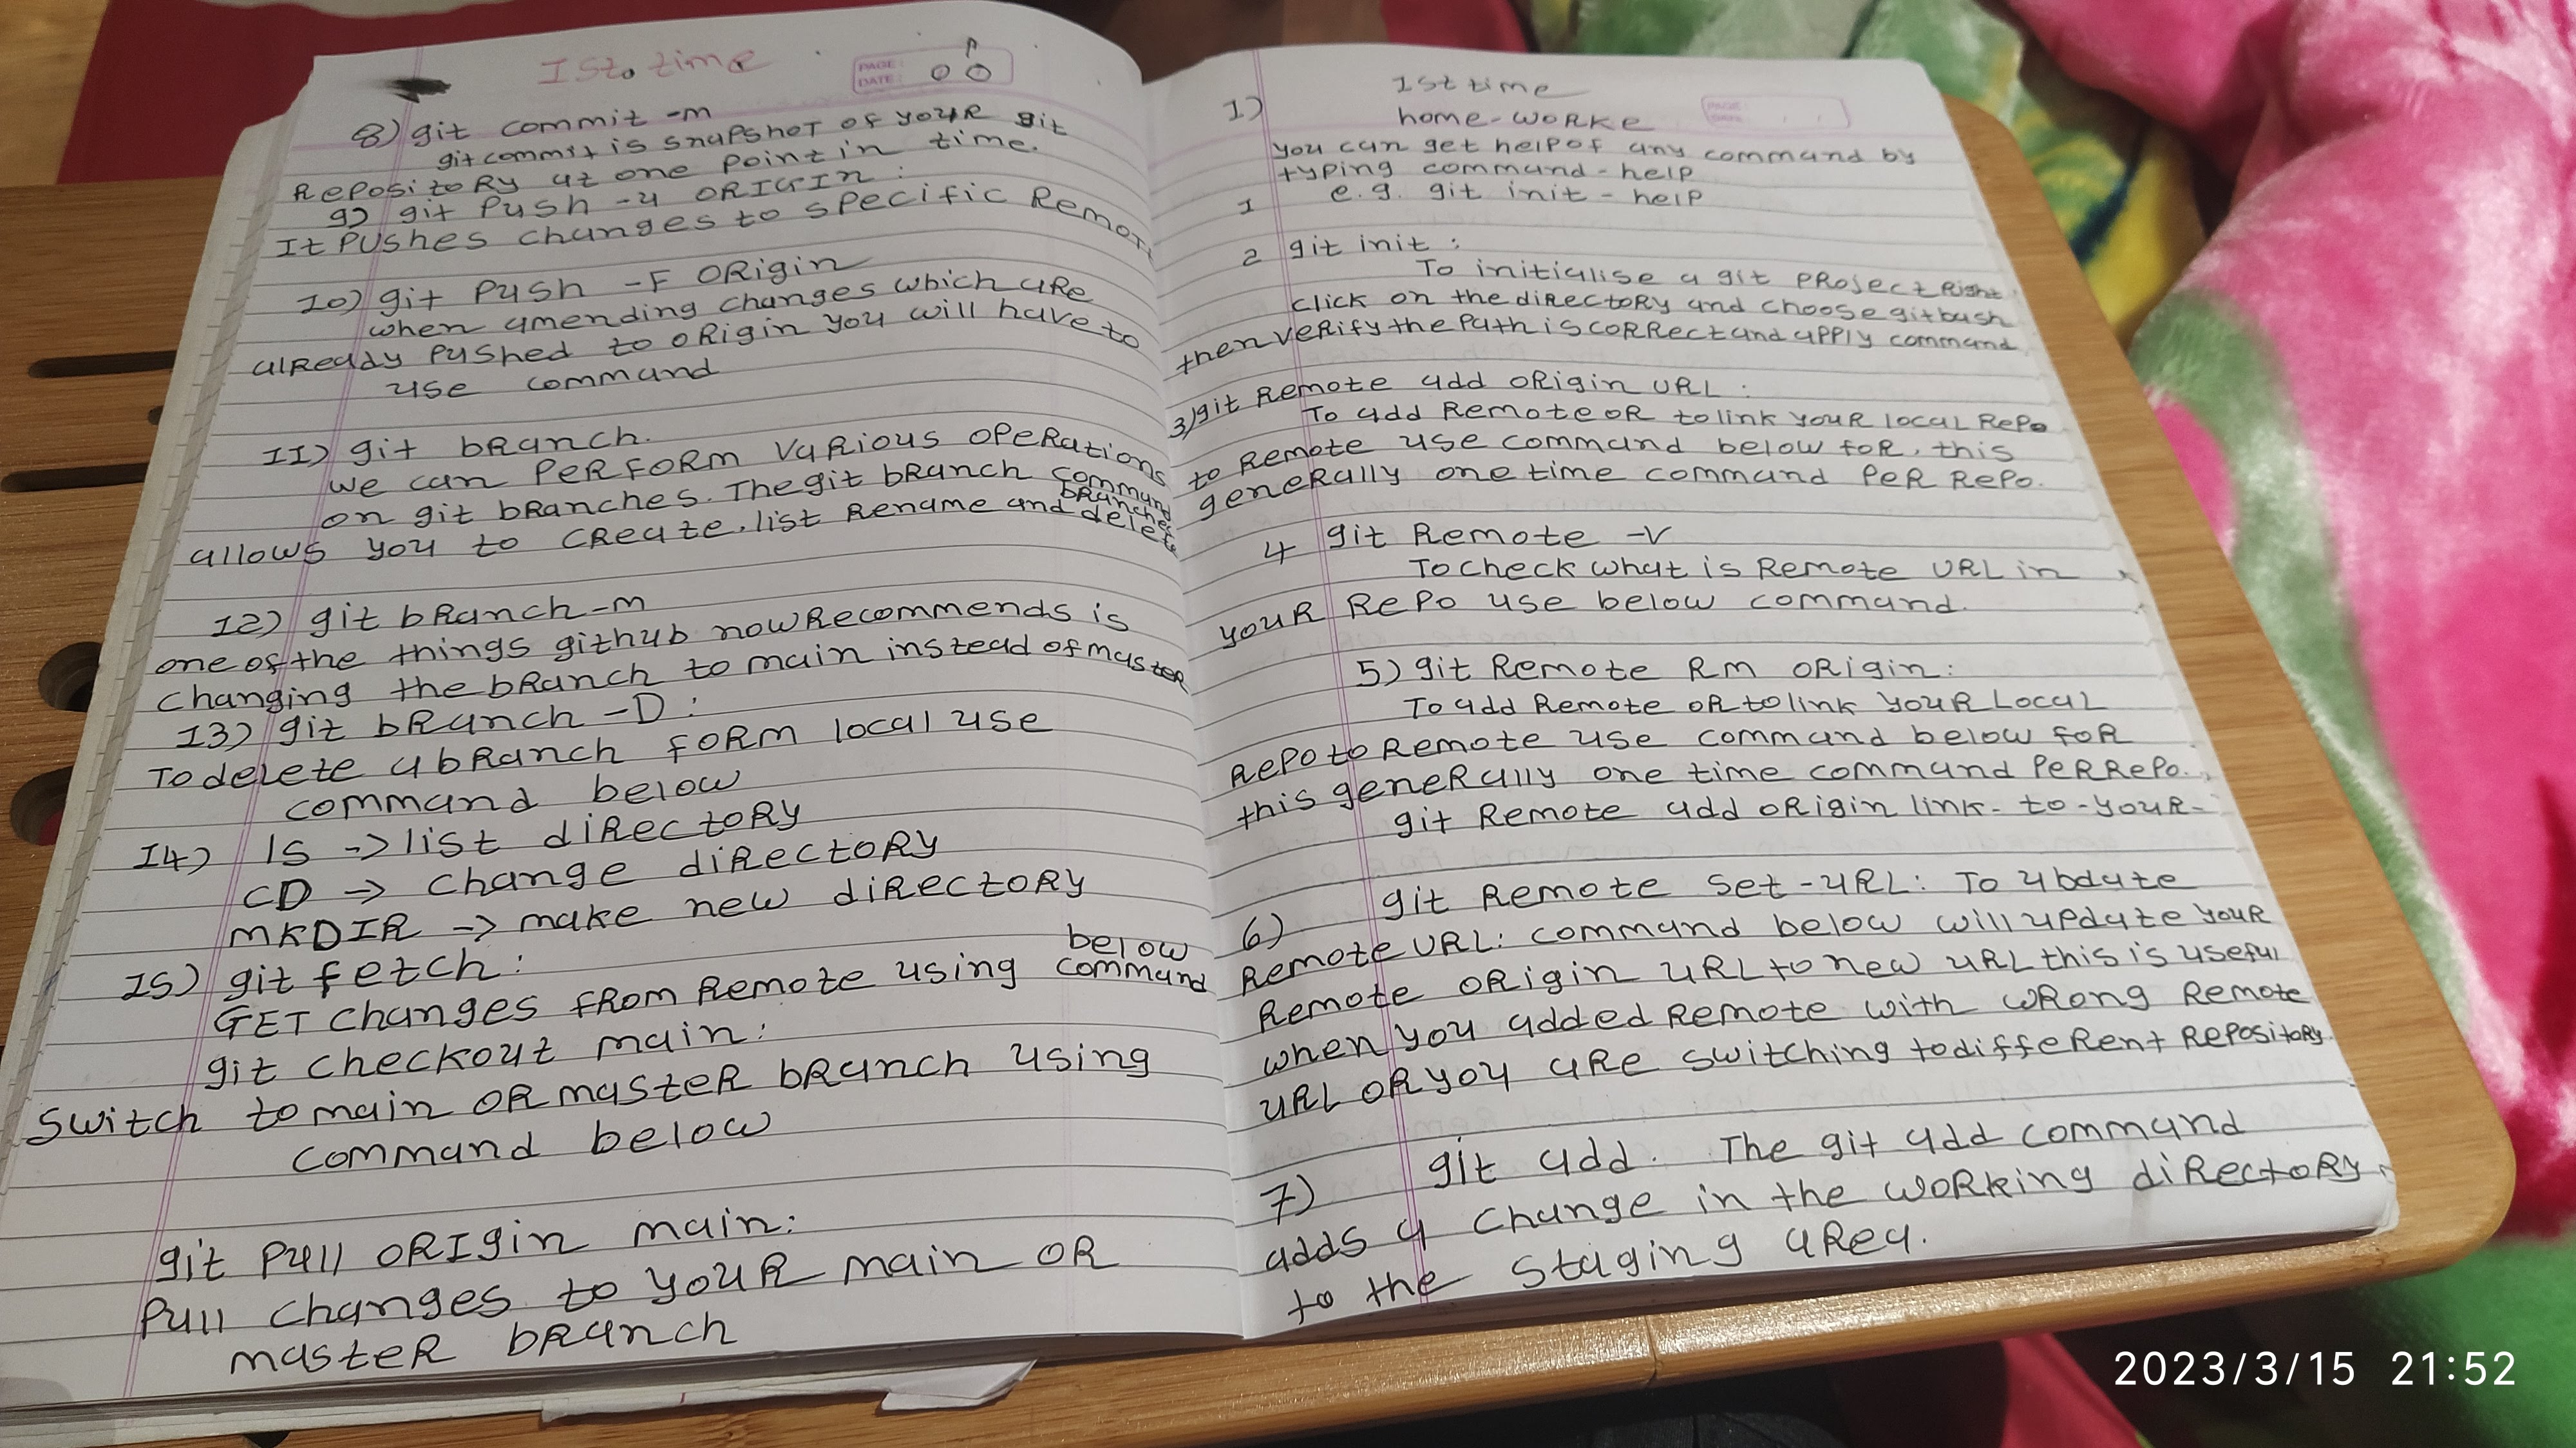 Ist. time
PAGE:
DATE:
8) git commit -m
git commit is snapshot of your git
Repository at one point in time.
9) git Push -u ORIGIN:
It Pushes changes to specific Remot
10) git Push -F ORigin
when amending changes which are
already Pushed to origin you will have to
use command
11) git branch.
we can PerForm various operations
on git branches. The git branch command
allows you to create. list Rename and delete
branches
12) git branch-m
one of the things github now Recommends is
changing the branch to main instead of master
13) git branch -D:
To delete a branch form local use
command below
14) ls -> list directory
CD -> change directory
MKDIR -> make new directory
15) git fetch:
GET changes from Remote using below
command
git checkout main:
Switch to main OR master branch using
command below
git Pull ORIgin main:
Pull changes to your main OR
master branch
1st time
1)
home-worke
PAGE
you can get help of any command by
typing command-help
1 e.g. git init - help
2 git init:
To initialise a git Project Right
click on the directory and choose gitbash
then verify the Path is correct and apply command
3) git Remote add origin URL:
To add Remote OR to link your local Repo
to Remote use command below for, this
generally one time command Per Repo.
4 git Remote -v
To check what is Remote URL in
your Repo use below command.
5) git Remote Rm origin:
To add Remote or to link your Local
Repo to Remote use command below for
this generally one time command Per Repo.
git Remote add origin link-to-your-
6) git Remote set-URL: To ubdate
Remote URL: command below will update your
Remote origin URL to new URL this is useful
when you added Remote with wrong Remote
URL OR you are switching to different Repository
7) git add. The git add command
adds a change in the working directory
to the staging area.
2023/3/15 21:52